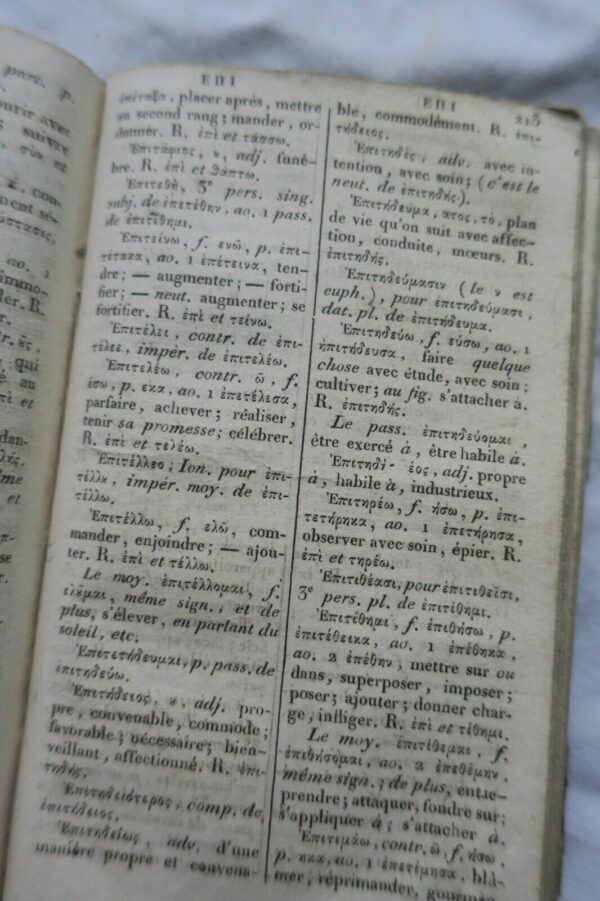 pars. p.
ourir avec
; suivre
, σύν et
. con-
ment sé-
ύστασες,
ao. 1
immo-
frer. R.
qui
é au
ει et
dan-
λής.
ême
et
se
ΕΠΙ
ἐπίταξα, placer après, mettre
au second rang; mander, or-
donner. R. ἐπὶ et τάσσω.
Ἐπιτάφιος, ȣ, adj. funé-
bre. R. ἐπὶ et θάπτω.
Ἐπιτεθῇ, 3e pers. sing.
subj. de ἐπετέθην, ao. 1 pass.
de ἐπιτίθημι.
Ἐπιτείνω, f. ενῶ, p. ἐπι-
τέτακα, ao. 1 ἐπέτεινα, ten-
dre; — augmenter; — forti-
fier; — neut. augmenter; se
fortifier. R. ἐπὶ et τείνω.
Ἐπιτέλει, contr. de ἐπι-
τέλεε, impér. de ἐπιτελέω.
Ἐπιτελέω, contr. ῶ, f.
έσω, p. εκα, ao. 1 ἐπετέλεσα,
parfaire, achever; réaliser,
tenir sa promesse; célébrer.
R. ἐπὶ et τελέω.
Ἐπιτέλλεο; Ion. pour ἐπι-
τέλλȣ, impér. moy. de ἐπι-
τέλλω.
Ἐπιτέλλω, f. ελῶ, com-
mander, enjoindre; — ajou-
ter. R. ἐπὶ et τέλλω.
Le moy. ἐπιτέλλομαι, f.
ελȣ͂μαι, même sign., et de
plus, s'élever, en parlant du
soleil, etc.
Ἐπιτετήδευμαι, p. pass. de
ἐπιτηδεύω.
Ἐπιτήδειος, ȣ, adj. pro-
pre, convenable, commode;
favorable; nécessaire; bien-
veillant, affectionné. R. ἐπι-
τηδής.
Ἐπιτηδειότερος, comp. de
ἐπιτήδειος.
Ἐπιτηδείως, adv. d'une
manière propre et convena-
ΕΠΙ 213
ble, commodément. R. ἐπι-
τήδειος.
Ἐπιτηδὲς, adv. avec in-
tention, avec soin; (c'est le
neut. de ἐπιτηδής).
Ἐπιτήδευμα, ατος, τὸ, plan
de vie qu'on suit avec affec-
tion, conduite, mœurs. R.
ἐπιτηδής.
Ἐπιτηδεύμασιν (le ν est
euph.), pour ἐπιτηδεύμασι,
dat. pl. de ἐπιτήδευμα.
Ἐπιτηδεύω, f. εύσω, ao. 1
ἐπιτήδευσα, faire quelque
chose avec étude, avec soin;
cultiver; au fig. s'attacher à.
R. ἐπιτηδής.
Le pass. ἐπιτηδεύομαι,
être exercé à, être habile à.
έος, adj. propre
à, habile à, industrieux.
Ἐπιτηρέω, f. ήσω, p. ἐπι-
τετήρηκα, ao. 1 ἐπετήρησα,
observer avec soin, épier. R.
ἐπὶ et τηρέω.
Ἐπιτιθέασι, pour ἐπιτιθεῖσι,
3e pers. pl. de ἐπιτίθημι.
Ἐπιτίθημι, f. ἐπιθήσω, p.
ἐπιτέθεικα, ao. 1 ἐπέθηκα,
ao. 2 ἐπέθην, mettre sur ou
dans, superposer, imposer;
poser; ajouter; donner char-
ge, infliger. R. ἐπὶ et τίθημι.
Le moy. ἐπιτίθεμαι, f.
ἐπιθήσομαι, ao. 2 ἐπεθέμην,
même sign.; de plus, entre-
prendre; attaquer, fondre sur;
s'appliquer à; s'attacher à.
Ἐπιτιμάω, contr. ῶ, f. ήσω,
p. ηκα, ao. 1 ἐπετίμησα, blâ-
mer, réprimander, gourman-